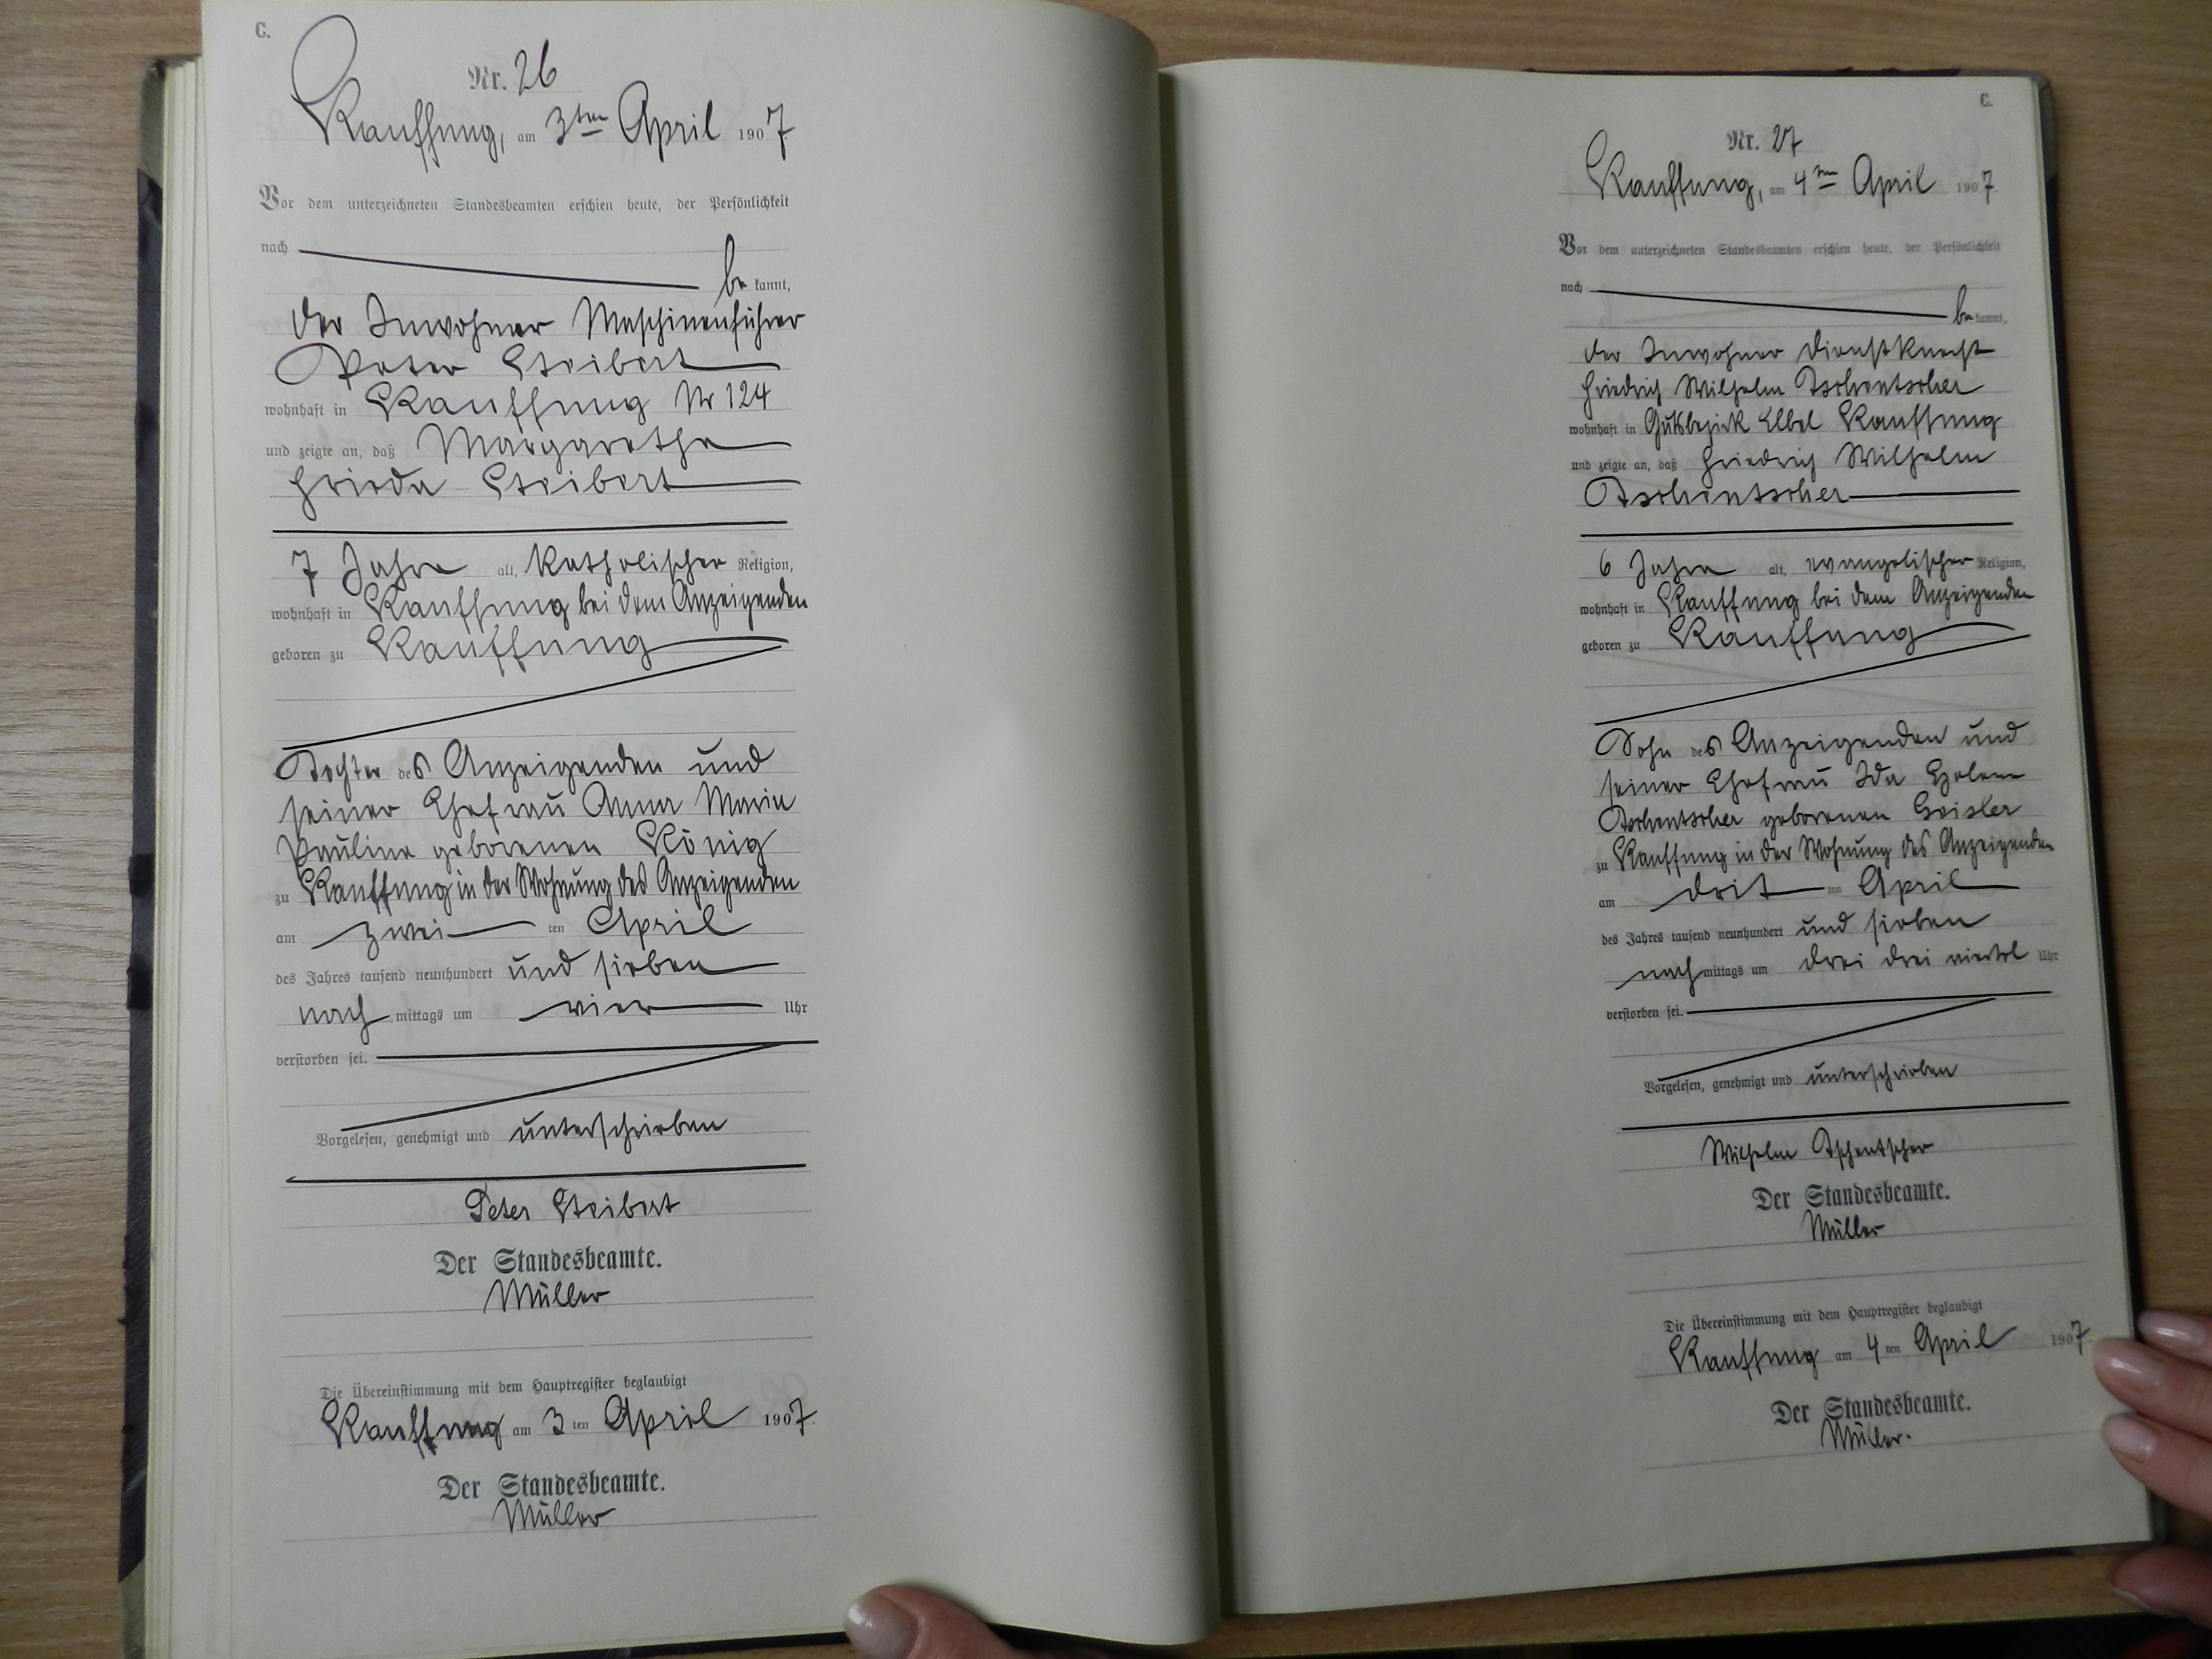 C.
Nr. 26
Kauffung, am 3ten April 1907.
Vor dem unterzeichneten Standesbeamten erschien heute, der Persönlichkeit
nach
be kannt,
der Inwohner Maschinenführer
Peter Steibert
wohnhaft in Kauffung Nr 124
und zeigte an, daß Margarethe
Frieda Steibert
7 Jahre alt, katholischer Religion,
wohnhaft in Kauffung bei dem Anzeigenden
geboren zu Kauffung
Tochter des Anzeigenden und
seiner Ehefrau Anna Maria
Pauline geborenen König
zu Kauffung in der Wohnung des Anzeigenden
am zwei ten April
des Jahres tausend neunhundert und sieben
nach mittags um vier Uhr
verstorben sei.
Vorgelesen, genehmigt und unterschrieben
Peter Steibert
Der Standesbeamte.
Müller
Die Übereinstimmung mit dem Hauptregister beglaubigt
Kauffung am 3 ten April 1907.
Der Standesbeamte.
Müller
C.
Nr. 27
Kauffung, am 4ten April 1907.
Vor dem unterzeichneten Standesbeamten erschien heute, der Persönlichkeit
nach
be kannt,
der Inwohner Dienstknecht
Friedrich Wilhelm Tschentscher
wohnhaft in Gutsbezirk Elbel Kauffung
und zeigte an, daß Friedrich Wilhelm
Tschentscher
6 Jahre alt, evangelischer Religion,
wohnhaft in Kauffung bei dem Anzeigenden
geboren zu Kauffung
Sohn des Anzeigenden und
seiner Ehefrau Ida Helene
Tschentscher geborenen Geisler
zu Kauffung in der Wohnung des Anzeigenden
am drit ten April
des Jahres tausend neunhundert und sieben
nach mittags um drei drei viertel Uhr
verstorben sei.
Vorgelesen, genehmigt und unterschrieben
Wilhelm Tschentscher
Der Standesbeamte.
Müller
Die Übereinstimmung mit dem Hauptregister beglaubigt
Kauffung am 4 ten April 1907.
Der Standesbeamte.
Müller.